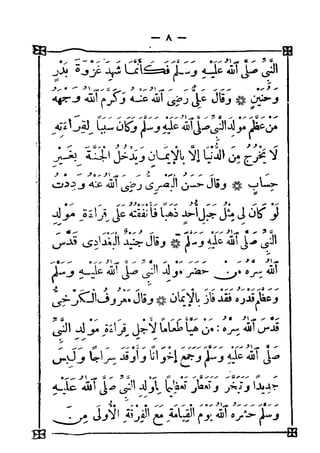 — ٨ —
النَّبِيِّ صَلَّى اللهُ عَلَيْهِ وَسَلَّمَ فَكَأَنَّمَا شَهِدَ غَزْوَةَ بَدْرٍ
وَحُنَيْنٍ * وَقَالَ عَلِيٌّ رَضِيَ اللهُ عَنْهُ وَكَرَّمَ اللهُ وَجْهَهُ
مَنْ عَظَّمَ مَوْلِدَ النَّبِيِّ صَلَّى اللهُ عَلَيْهِ وَسَلَّمَ وَكَانَ سَبَبًا لِقِرَاءَتِهِ
لَا يَخْرُجُ مِنَ الدُّنْيَا إِلَّا بِالْإِيمَانِ وَيَدْخُلُ الْجَنَّةَ بِغَيْرِ
حِسَابٍ * وَقَالَ حَسَنُ الْبَصْرِيُّ رَضِيَ اللهُ عَنْهُ وَدِدْتُ
لَوْ كَانَ لِي مِثْلُ جَبَلِ أُحُدٍ ذَهَبًا فَأَنْفَقْتُهُ عَلَى قِرَاءَةِ مَوْلِدِ
النَّبِيِّ صَلَّى اللهُ عَلَيْهِ وَسَلَّمَ * وَقَالَ جُنَيْدُ الْبَغْدَادِي قَدَّسَ
اللهُ سِرَّهُ مَنْ حَضَرَ مَوْلِدَ النَّبِيِّ صَلَّى اللهُ عَلَيْهِ وَسَلَّمَ
وَعَظَّمَ قَدْرَهُ فَقَدْ فَازَ بِالْإِيمَانِ * وَقَالَ مَعْرُوفُ الْكَرْخِيُّ
قَدَّسَ اللهُ سِرَّهُ : مَنْ هَيَّأَ طَعَامًا لِأَجْلِ قِرَاءَةِ مَوْلِدِ النَّبِيِّ
صَلَّى اللهُ عَلَيْهِ وَسَلَّمَ وَجَمَعَ إِخْوَانًا وَأَوْقَدَ سِرَاجًا وَلَبِسَ
جَدِيدًا وَتَبَخَّرَ وَتَعَطَّرَ تَعْظِيمًا لِمَوْلِدِ النَّبِيِّ صَلَّى اللهُ عَلَيْهِ
وَسَلَّمَ حَشَرَهُ اللهُ يَوْمَ الْقِيَامَةِ مَعَ الْفِرْقَةِ الْأُولَى مِنَ